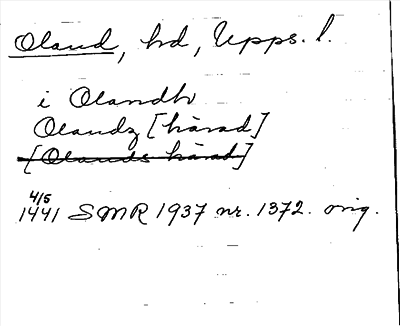 Oland, hd, Upps. l.
i Olandh
Olandz [härad]
[Olands härad]
4/5
1441 SMR 1937 nr. 1372. orig.